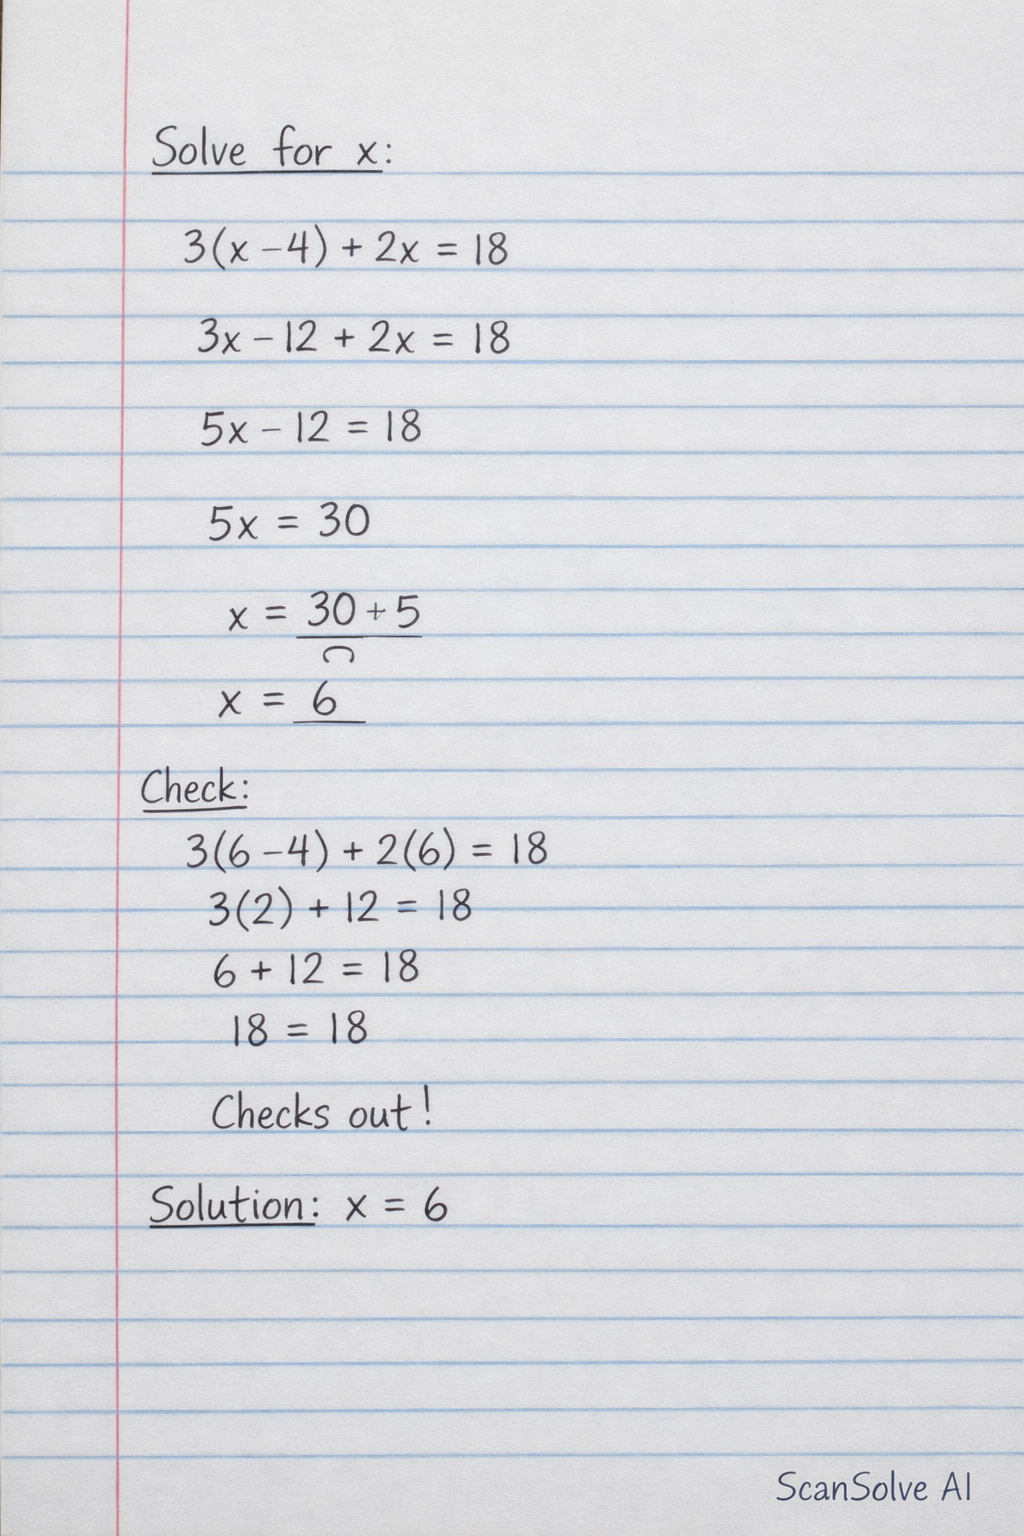 Solve for x:
3(x – 4) + 2x = 18
3x – 12 + 2x = 18
5x – 12 = 18
5x = 30
x = 30 + 5
x = 6
Check:
3(6 – 4) + 2(6) = 18
3(2) + 12 = 18
6 + 12 = 18
18 = 18
Checks out!
Solution: x = 6
ScanSolve AI